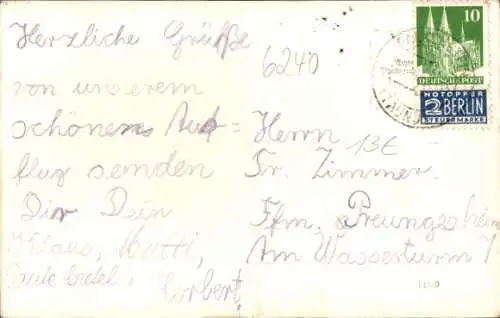 Herzliche Grüße
von unserem
schönen Aus=
flug senden
Dir Dein
Klaus, Mutti,
Tante Gretel,
Norbert,
6240
Herrn 13€
Fr. Zimmer.
Ffm. Preungesheim
Am Wasserturm 1
10
DEUTSCHE POST
NOTOPFER
2 BERLIN
STEUERMARKE